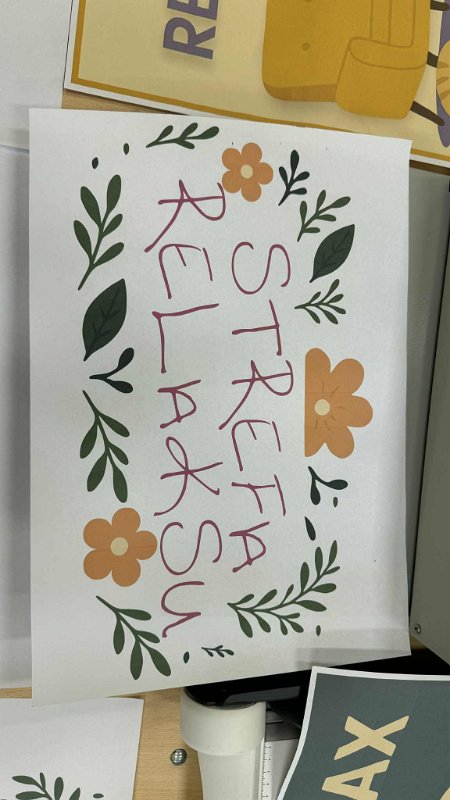 STREFA
RELAKSU
RE
AX